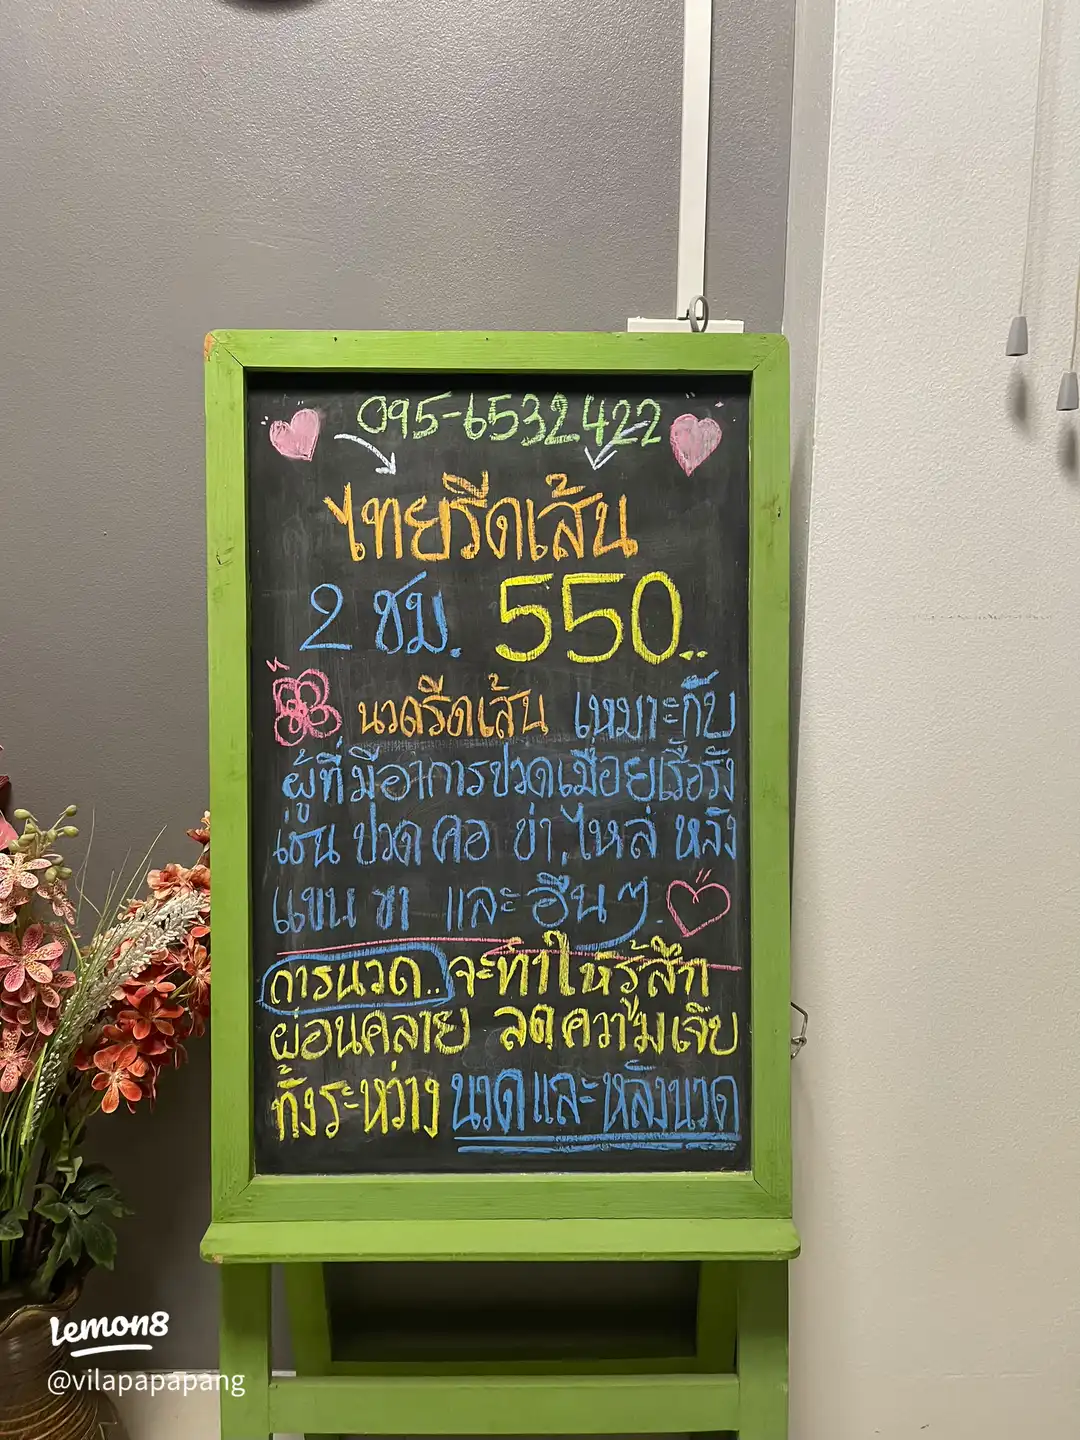 095-6532422
ไทยรีดเส้น
2 ชม. 550..
นวดรีดเส้น เหมาะกับ
ผู้ที่มีอาการปวดเมื่อยเรื้อรัง
เช่น ปวด คอ บ่า,ไหล่ หลัง
แขน ขา และ อื่น ๆ.
การนวด.. จะทำให้รู้สึก
ผ่อนคลาย ลดความเจ็บ
ทั้งระหว่าง นวดและหลังนวด
lemon8
@vilapapapang